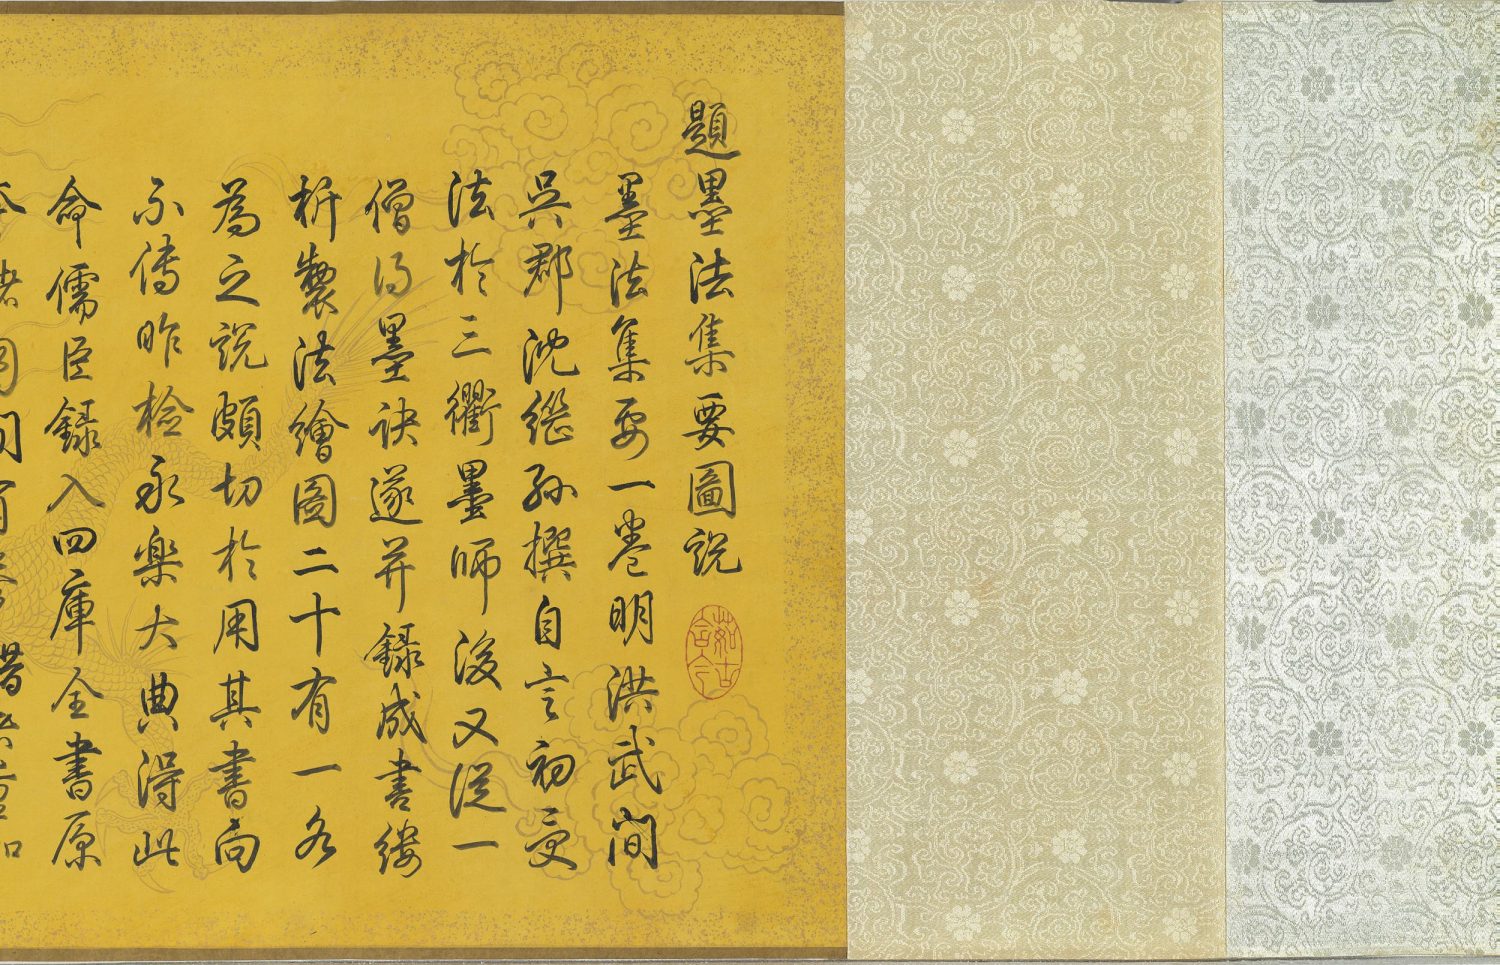 題墨法集要圖説
茹古含今
墨法集要一卷明洪武間
吳郡沈繼孫撰自言初受
法於三衢墨師後又從一
僧得墨訣遂并錄成書縷
析製法繪圖二十有一各
為之説頗切於用其書向
不傳昨檢永樂大典得此
命儒臣錄入四庫全書原